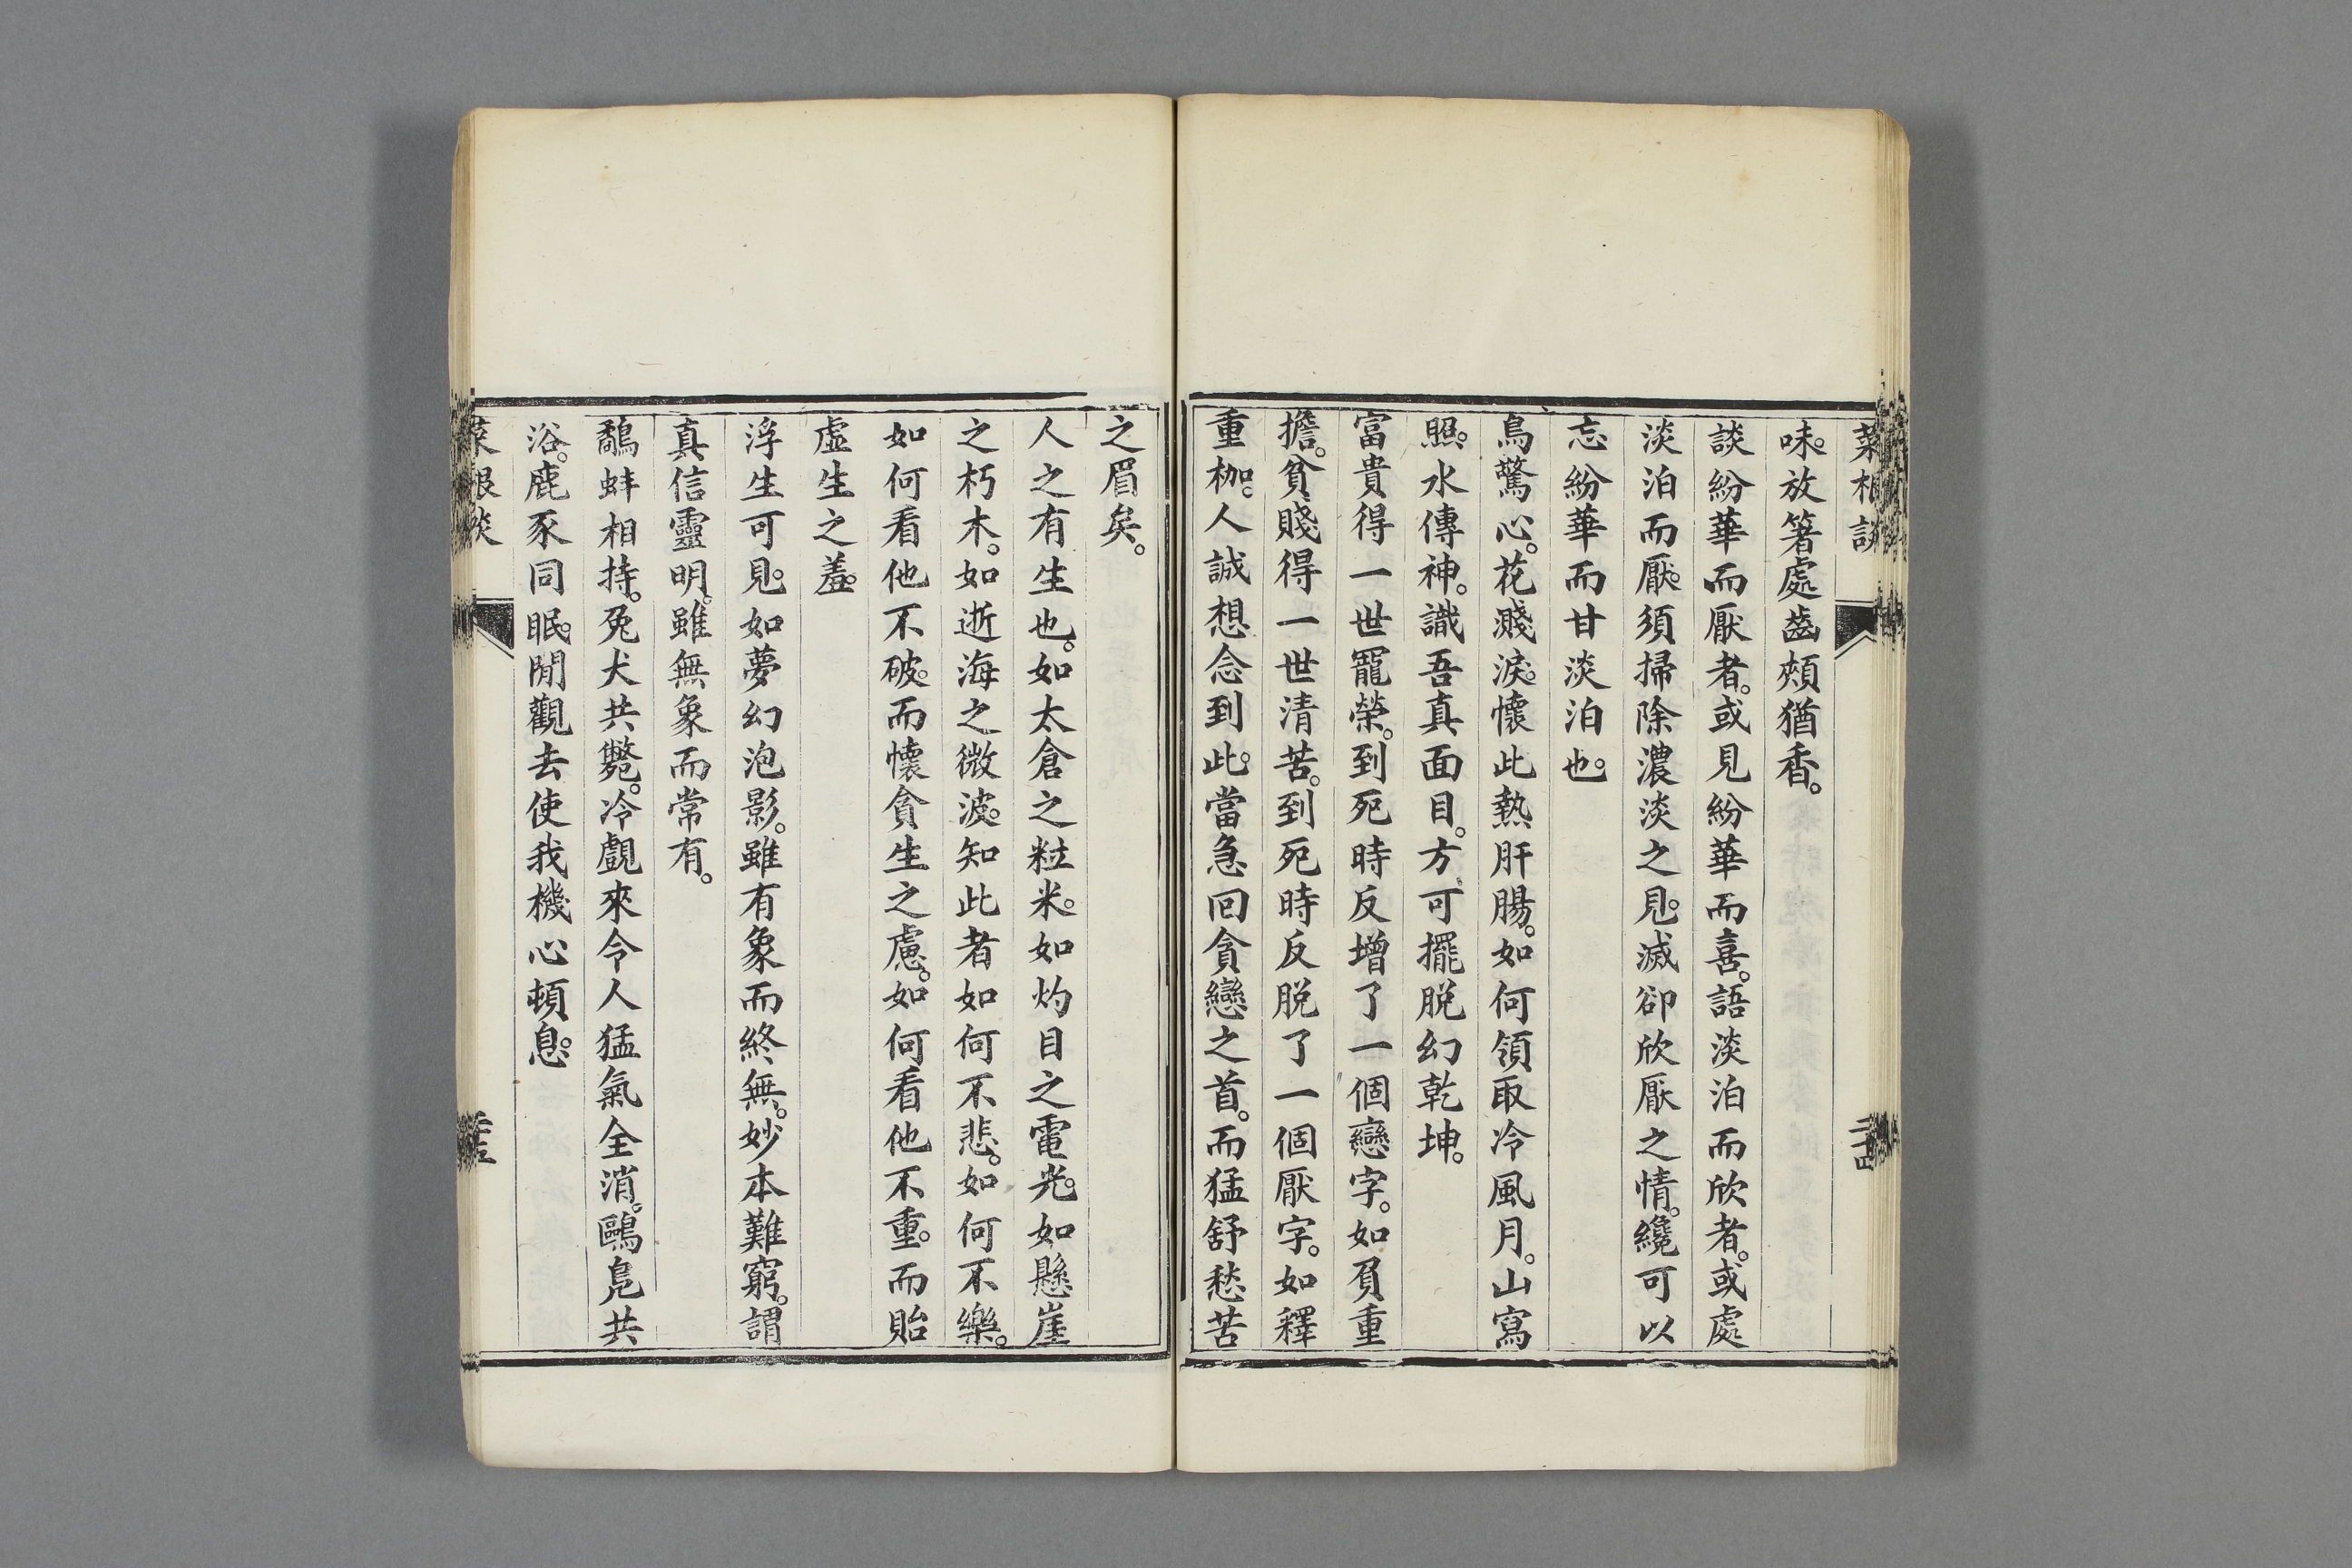 菜根談
二十四
味。放箸處齒頰猶香。
談紛華而厭者。或見紛華而喜。語淡泊而欣者。或處
淡泊而厭。須掃除濃淡之見。滅卻欣厭之情。纔可以
忘紛華而甘淡泊也。
鳥驚心。花濺淚。懷此熱肝腸。如何領取冷風月。山寫
照。水傳神。識吾真面目。方可擺脱幻乾坤。
富貴得一世寵榮。到死時反增了一個戀字。如負重
擔。貧賤得一世清苦。到死時反脱了一個厭字。如釋
重枷。人誠想念到此。當急回貪戀之首。而猛舒愁苦
之眉矣。
人之有生也。如太倉之粒米。如灼目之電光。如懸崖
之朽木。如逝海之微波。知此者如何不悲。如何不樂。
如何看他不破。而懷貪生之慮。如何看他不重。而貽
虛生之羞。
浮生可見。如夢幻泡影。雖有象而終無。妙本難窮。謂
真信靈明。雖無象而常有。
鷸蚌相持。兔犬共斃。冷覷來令人猛氣全消。鷗鳧共
浴。鹿豕同眠。閒觀去使我機心頓息。
菜根談
二十五